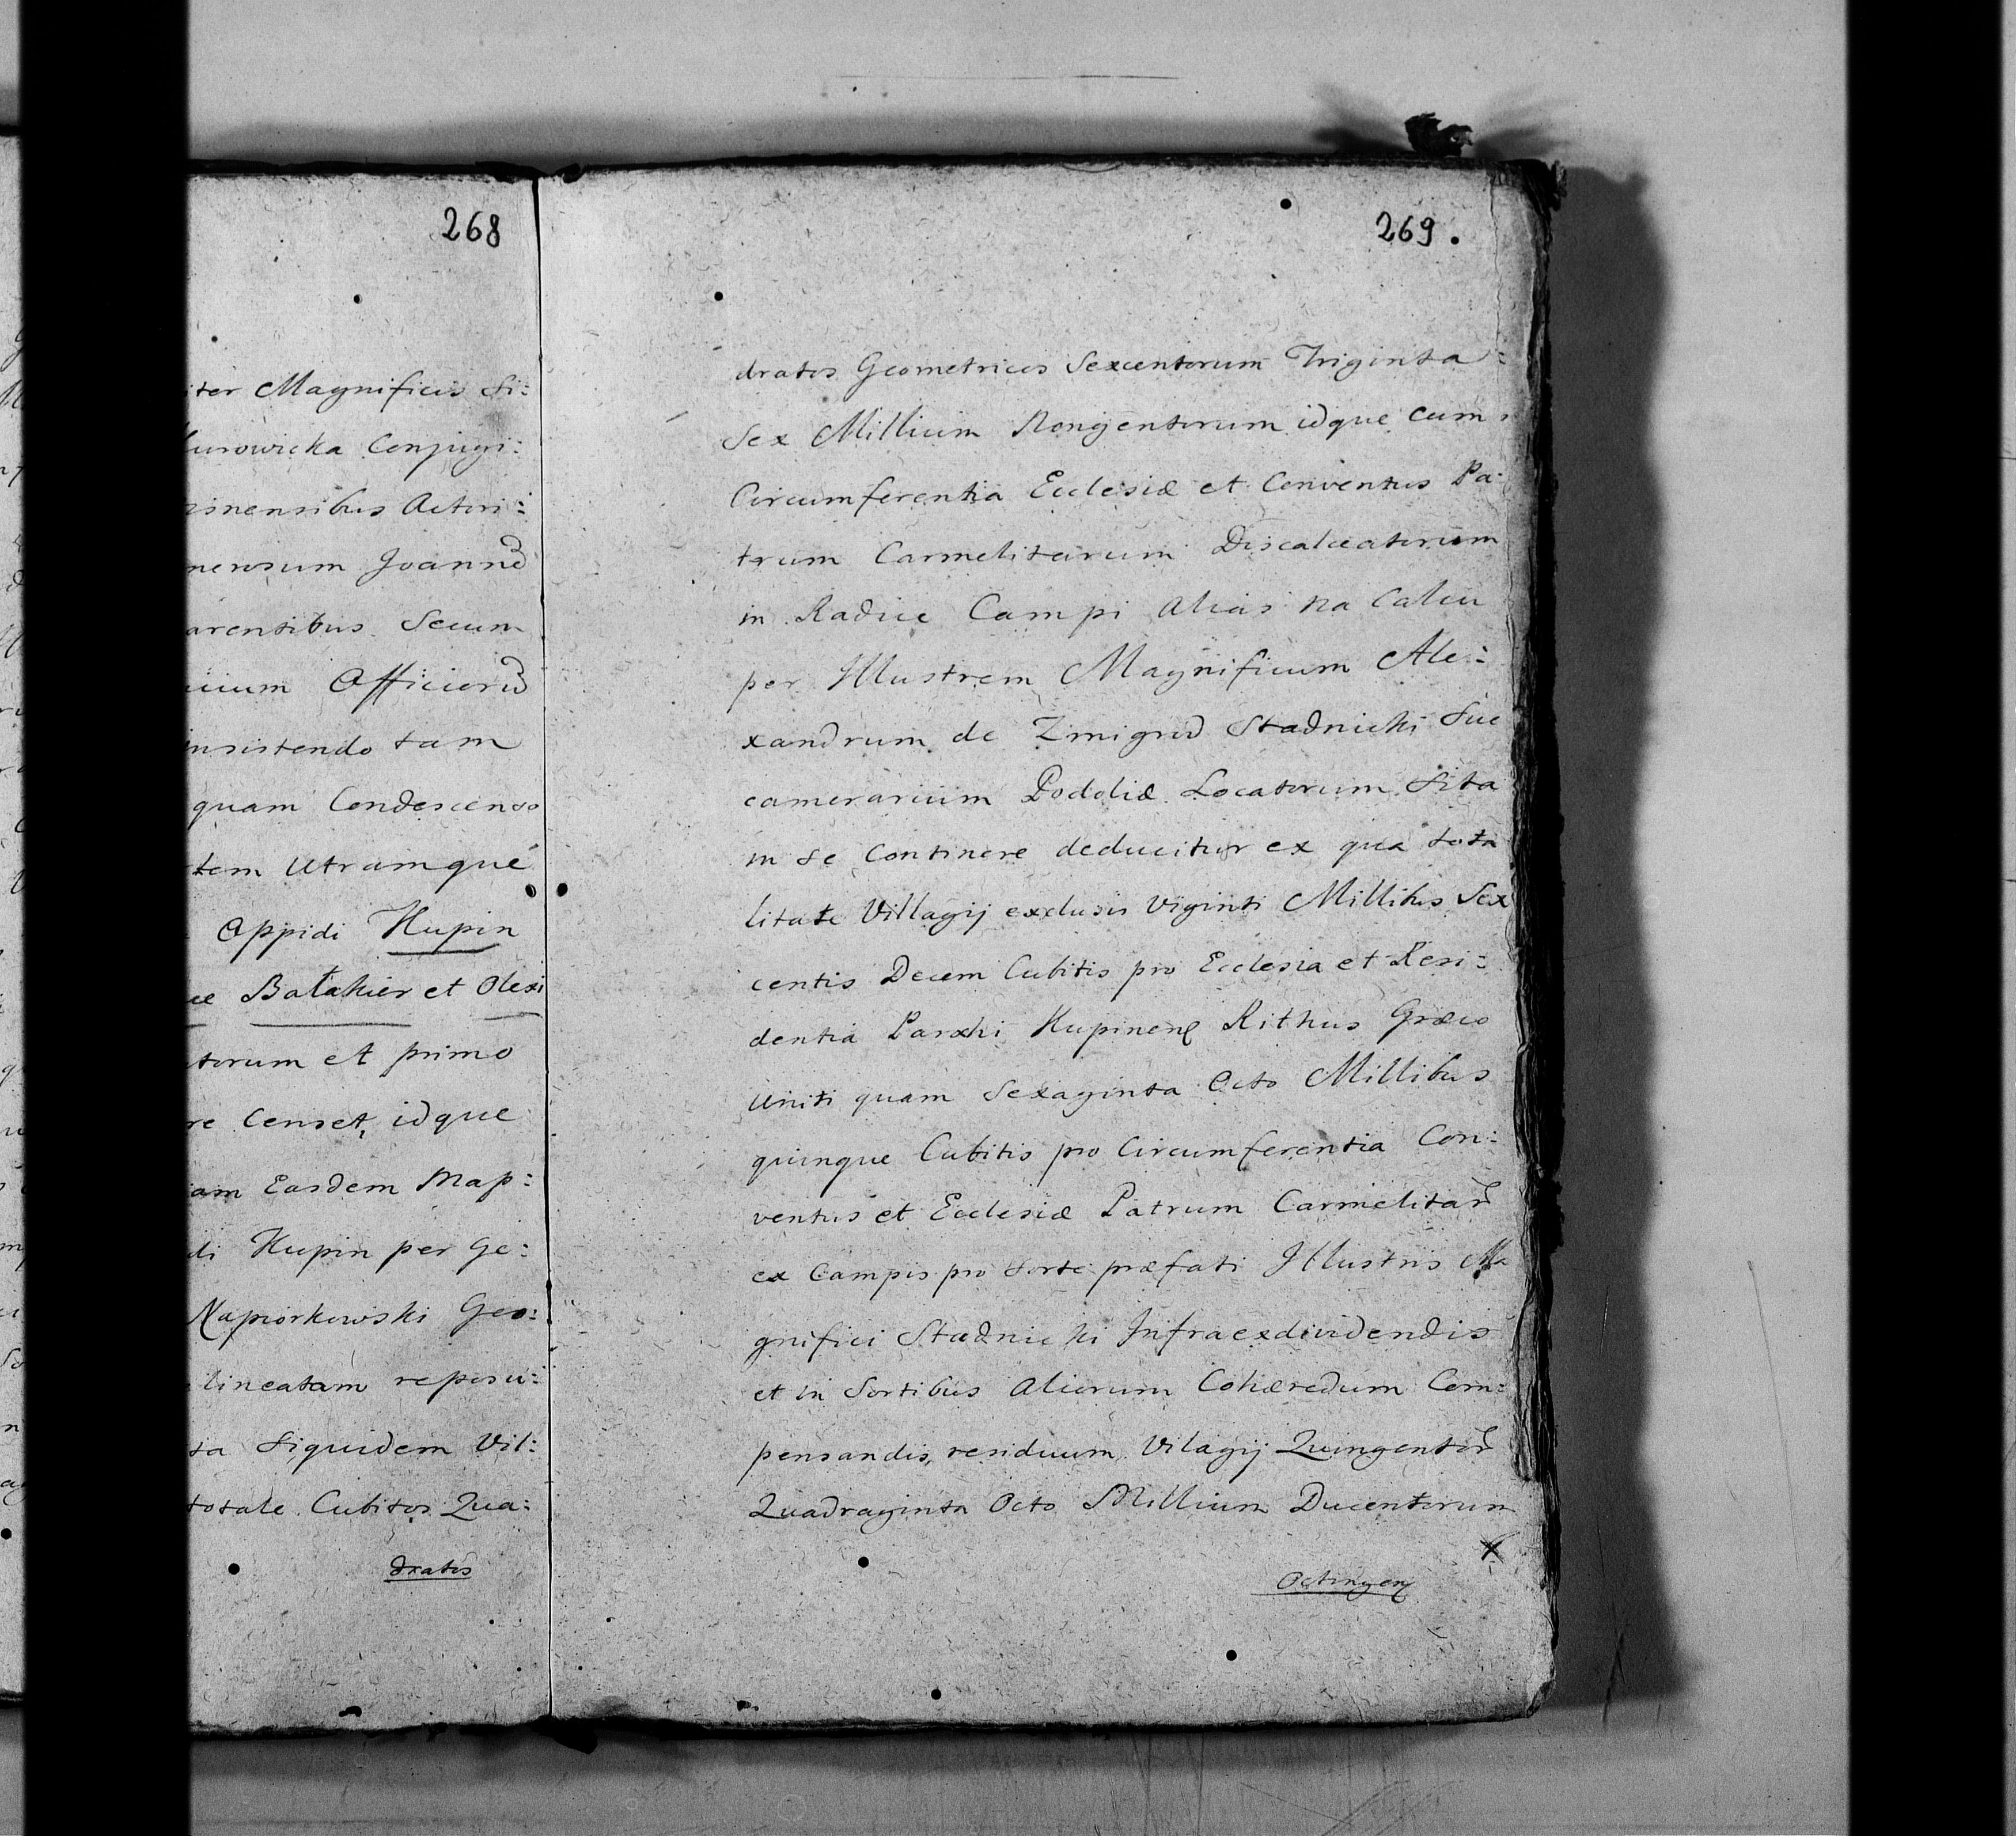 268
iter Magnificis Si:
Kurowicka Conjugi:
pinensibus Actori:
nerosum Joannē
arentibus Secum
Officiorū
insistendo tam
quam Condescenso
tem Utramque
Oppidi Kupin
ce Batakier et Olexi
torum et primo
re Censet, idque
iam Easdem Map:
di Kupin per Ge:
Napiorkowski Geo:
lineatam reposu:
ta Siquidem Vil:
totale Cubitos Qua:
dratos
269.
dratos Geometricos Sexcentorum Triginta:
Sex Millium Nongentorum idque cum
Circumferentia Ecclesiæ et Conventus Pa:
trum Carmelitarum Discalceatorum
in Radice Campi Alias na Calcu
per Illustrem Magnificum Ale:
xandrum de Zmigrod Stadnicki Suc
camerarium Podoliæ Locatorum Sita
in se Continere deducitur ex qua tota
litate Villagij exclusis Viginti Millibus Sex
centis Decem Cubitis pro Ecclesia et Resi:
dentia Parochi Kupinenę Rithus Græco
Uniti quam Sexaginta Octo Millibus
quinque Cubitis pro Circumferentia Con:
ventus et Ecclesiæ Patrum Carmelitar̃
ex Campis pro Sorte præfati Illustris Ma
gnifici Stadnicki Infraexdividendis
et in Sortibus Aliorum Cohæredum Com:
pensandis, residuum Vilagij Quingentor̃
Quadraginta Octo Millium Ducentorum
Octingenę